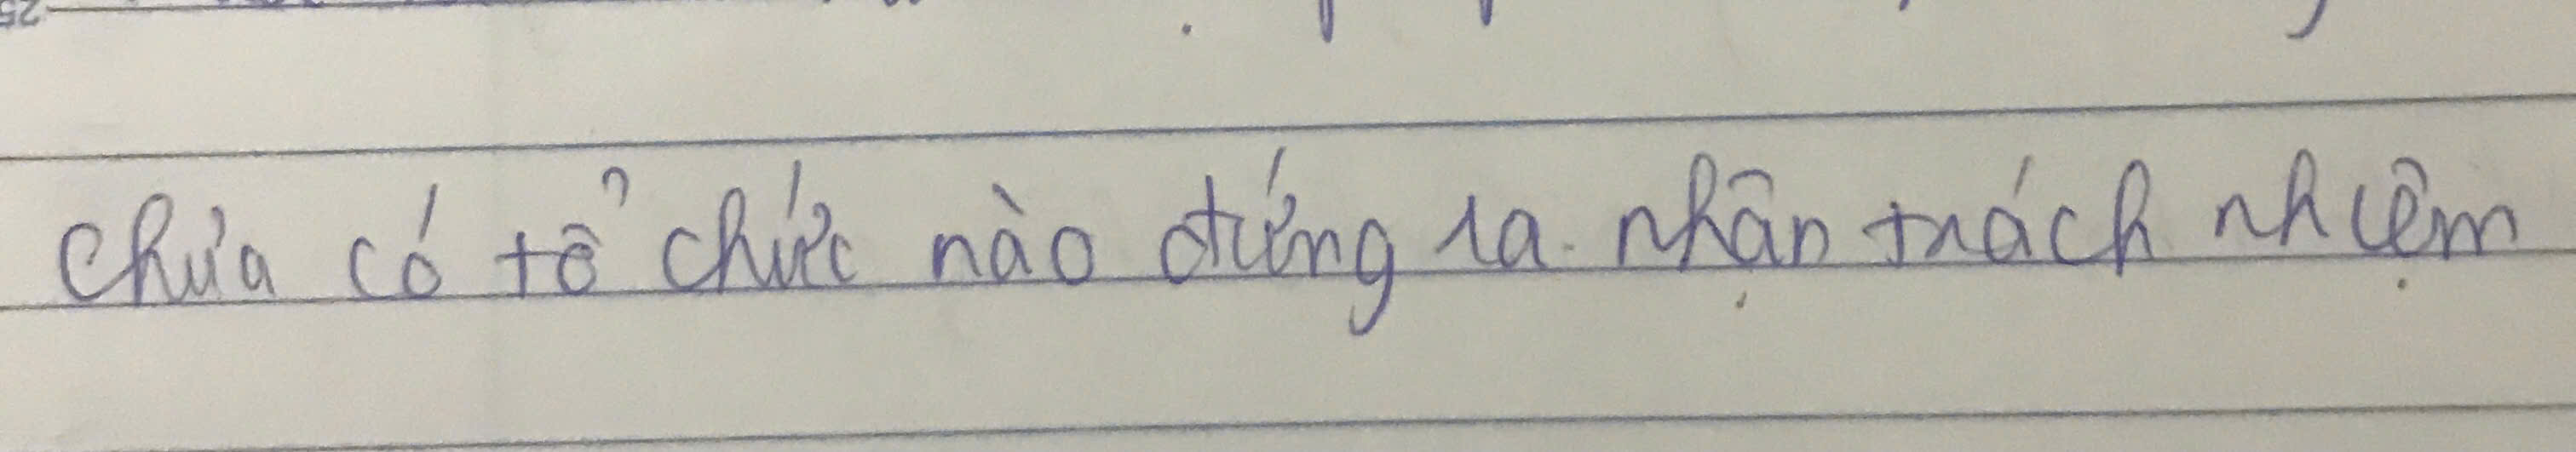 chưa có tổ chức nào đứng ra nhận trách nhiệm